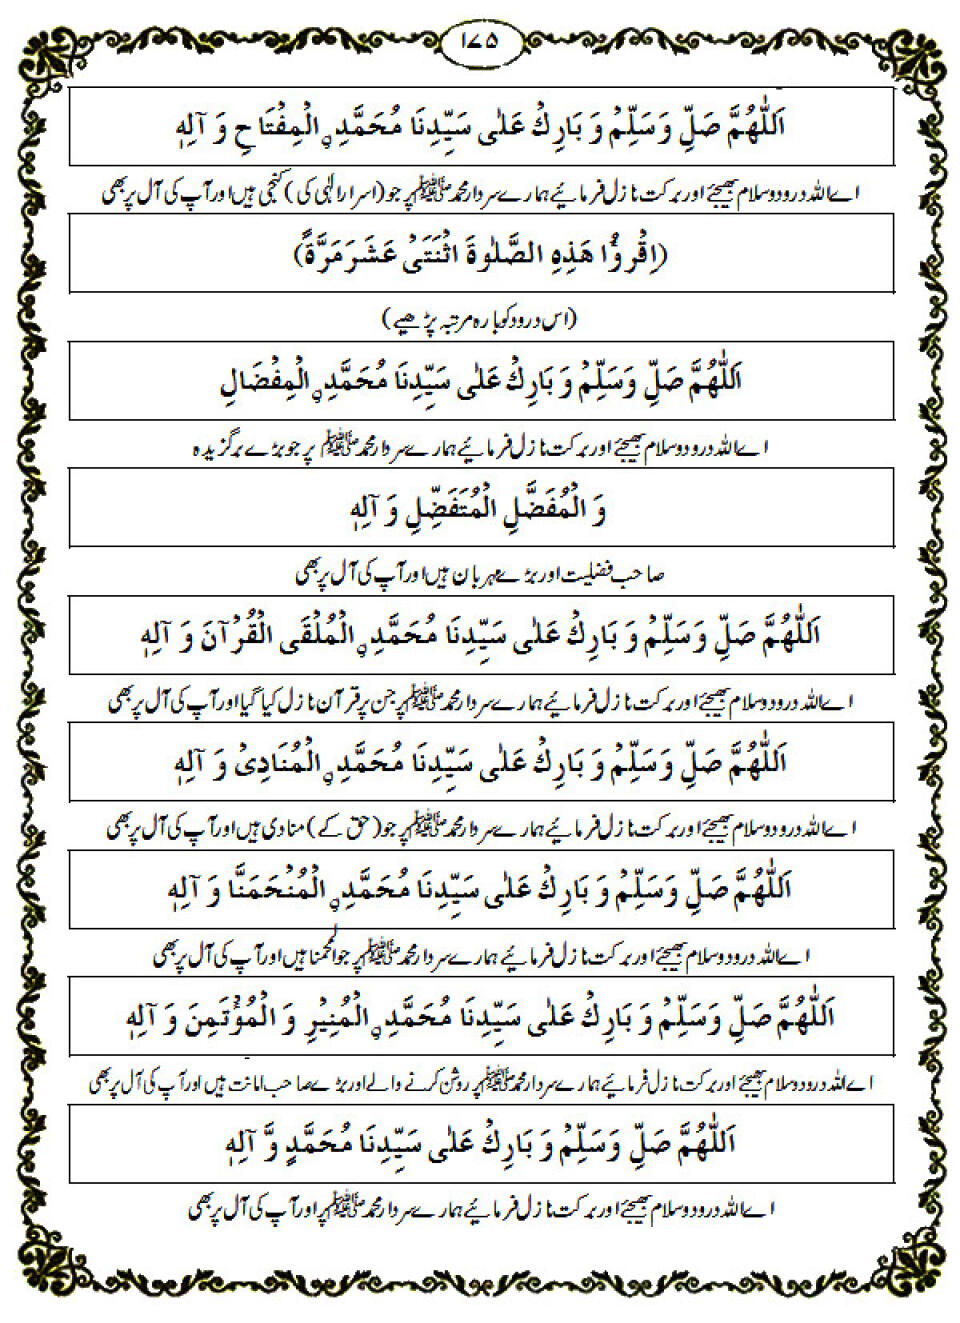 ۱۷۵
اَللّٰهُمَّ صَلِّ وَسَلِّمْ وَ بَارِكْ عَلٰى سَيِّدِنَا مُحَمَّدِ ۣالْمِفْتَاحِ وَ آلِهٖ
اے اللہ درود و سلام بھیجئے اور برکت نازل فرمائیے ہمارے سردار محمد ﷺ پر جو (اسرار الٰہی کی) کنجی ہیں اور آپ کی آل پر بھی
(اِقْرَؤُا هَذِهِ الصَّلٰوةَ اثْنَتَىْ عَشَرَ مَرَّةً)
(اس درود کو بارہ مرتبہ پڑھیے)
اَللّٰهُمَّ صَلِّ وَسَلِّمْ وَ بَارِكْ عَلٰى سَيِّدِنَا مُحَمَّدِ ۣالْمِفْضَالِ
اے اللہ درود و سلام بھیجئے اور برکت نازل فرمائیے ہمارے سردار محمد ﷺ پر جو بڑے برگزیدہ
وَ الْمُفَضَّلِ الْمُتَفَضِّلِ وَ آلِهٖ
صاحب فضلیت اور بڑے مہربان ہیں اور آپ کی آل پر بھی
اَللّٰهُمَّ صَلِّ وَسَلِّمْ وَ بَارِكْ عَلٰى سَيِّدِنَا مُحَمَّدِ ۣالْمُلْقَى الْقُرْآنَ وَ آلِهٖ
اے اللہ درود و سلام بھیجئے اور برکت نازل فرمائیے ہمارے سردار محمد ﷺ پر جن پر قرآن نازل کیا گیا اور آپ کی آل پر بھی
اَللّٰهُمَّ صَلِّ وَسَلِّمْ وَ بَارِكْ عَلٰى سَيِّدِنَا مُحَمَّدِ ۣالْمُنَادِىْ وَ آلِهٖ
اے اللہ درود و سلام بھیجئے اور برکت نازل فرمائیے ہمارے سردار محمد ﷺ پر جو (حق کے) منادی ہیں اور آپ کی آل پر بھی
اَللّٰهُمَّ صَلِّ وَسَلِّمْ وَ بَارِكْ عَلٰى سَيِّدِنَا مُحَمَّدِ ۣالْمُنْحَمَنَّا وَ آلِهٖ
اے اللہ درود و سلام بھیجئے اور برکت نازل فرمائیے ہمارے سردار محمد ﷺ پر جو المنحمنا ہیں اور آپ کی آل پر بھی
اَللّٰهُمَّ صَلِّ وَسَلِّمْ وَ بَارِكْ عَلٰى سَيِّدِنَا مُحَمَّدِ ۣالْمُنِيْرِ وَ الْمُؤْتَمِنَ وَ آلِهٖ
اے اللہ درود و سلام بھیجئے اور برکت نازل فرمائیے ہمارے سردار محمد ﷺ پر روشن کرنے والے اور بڑے صاحب امانت ہیں اور آپ کی آل پر بھی
اَللّٰهُمَّ صَلِّ وَسَلِّمْ وَ بَارِكْ عَلٰى سَيِّدِنَا مُحَمَّدٍ وَّ آلِهٖ
اے اللہ درود و سلام بھیجئے اور برکت نازل فرمائیے ہمارے سردار محمد ﷺ پر اور آپ کی آل پر بھی